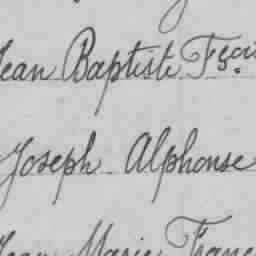 Jean Baptiste Fçois
Joseph Alphonse
Jean Marie Franç